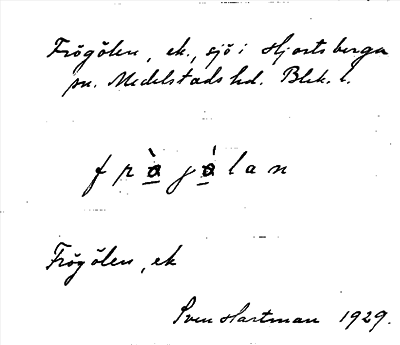 Frögölen, ek., sjö i Hjortsberga
sn. Medelstads hd. Blek. l.
frò̲jó̲lan
Frögölen, ek
Sven Hartman 1929.